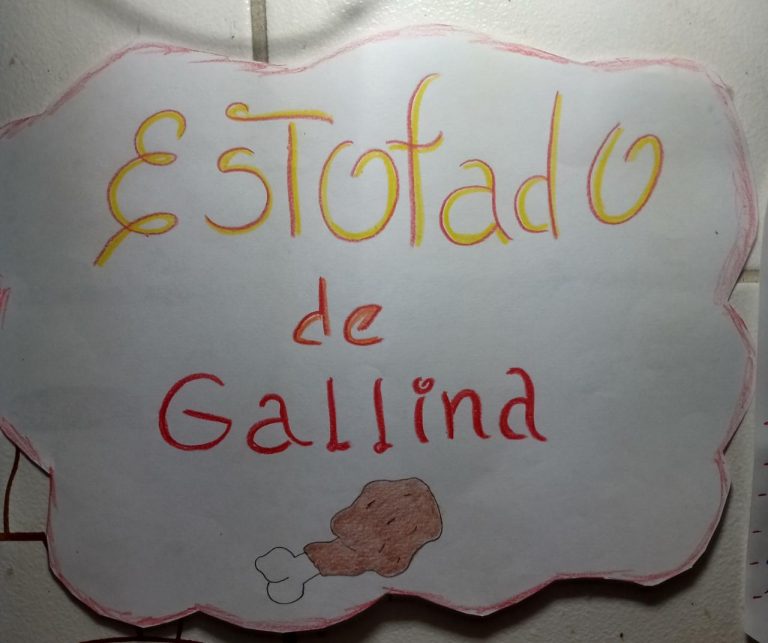 Estofado
de
Gallina